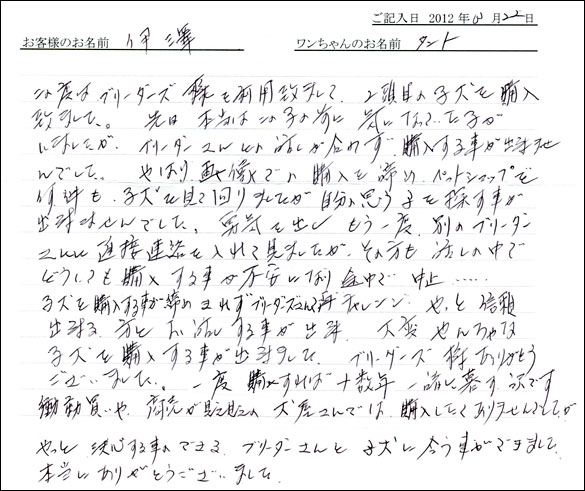 ご記入日 2012年 月22日
お客様のお名前 伊澤 ワンちゃんのお名前 タント
この度はブリーダーズ様を利用致しまして、2頭目の子犬を購入
致しました。 先日 本当はこの子の前に 気になっていた子が
いましたが、ブリーダーさんとの話しが合わず 購入する事が出来ませ
んでした。 やはり画像での購入を諦め ペットショップを
何件も 子犬を見て回りましたが自分の思う子を探す事が
出来ませんでした。勇気を出し もう一度、別のブリーダー
さんに直接連絡を入れて見ましたが、その方も 話しの中で
どうしても購入する事が不安になり途中で 中止……
子犬を購入する事が諦めきれずブリーダーズさんで再チャレンジ やっと信頼
出来る 方と お話しする事が出来 大変 やんちゃな
子犬を購入する事が出来ました。 ブリーダーズ様ありがとう
ございました。 一度 購入すれば十数年 一諸に暮す訳です
衝動買いや、商売が見え見えの犬屋さんでは、購入したくありませんでしたが
やっと 決心する事のできる ブリーダーさんと 子犬に会う事ができました
本当にありがとうございました。